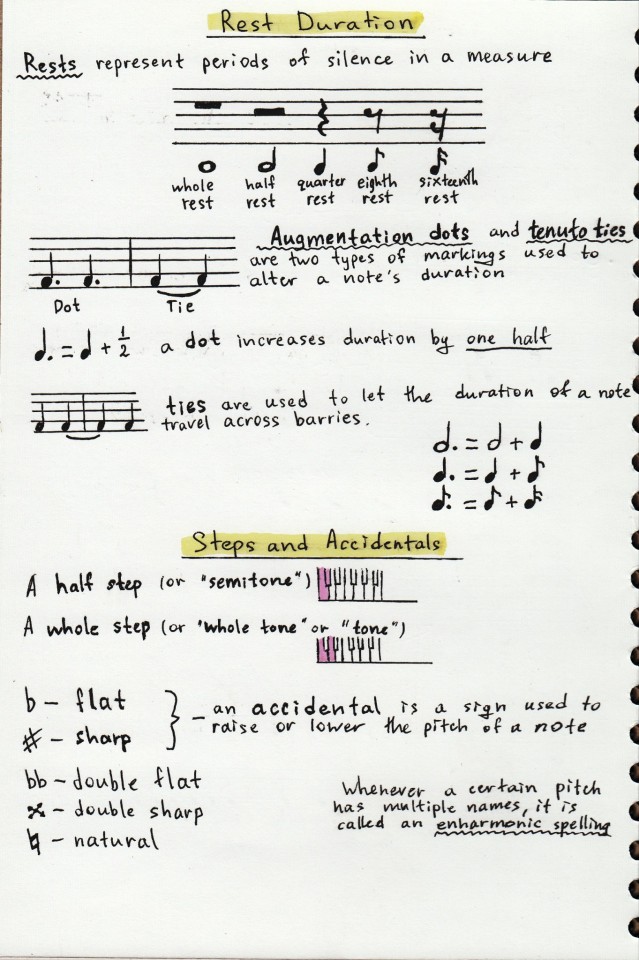 Rest Duration
Rests represent periods of silence in a measure
whole rest
half rest
quarter rest
eighth rest
sixteenth rest
Augmentation dots and tenuto ties
are two types of markings used to
alter a note's duration
Dot
Tie
= + 1/2 a dot increases duration by one half
ties are used to let the duration of a note
travel across barries.
= +
= +
= +
Steps and Accidentals
A half step (or "semitone")
A whole step (or "whole tone" or "tone")
b - flat
♯ - sharp
} - an accidental is a sign used to
raise or lower the pitch of a note
bb - double flat
𝄪 - double sharp
♮ - natural
Whenever a certain pitch
has multiple names, it is
called an enharmonic spelling